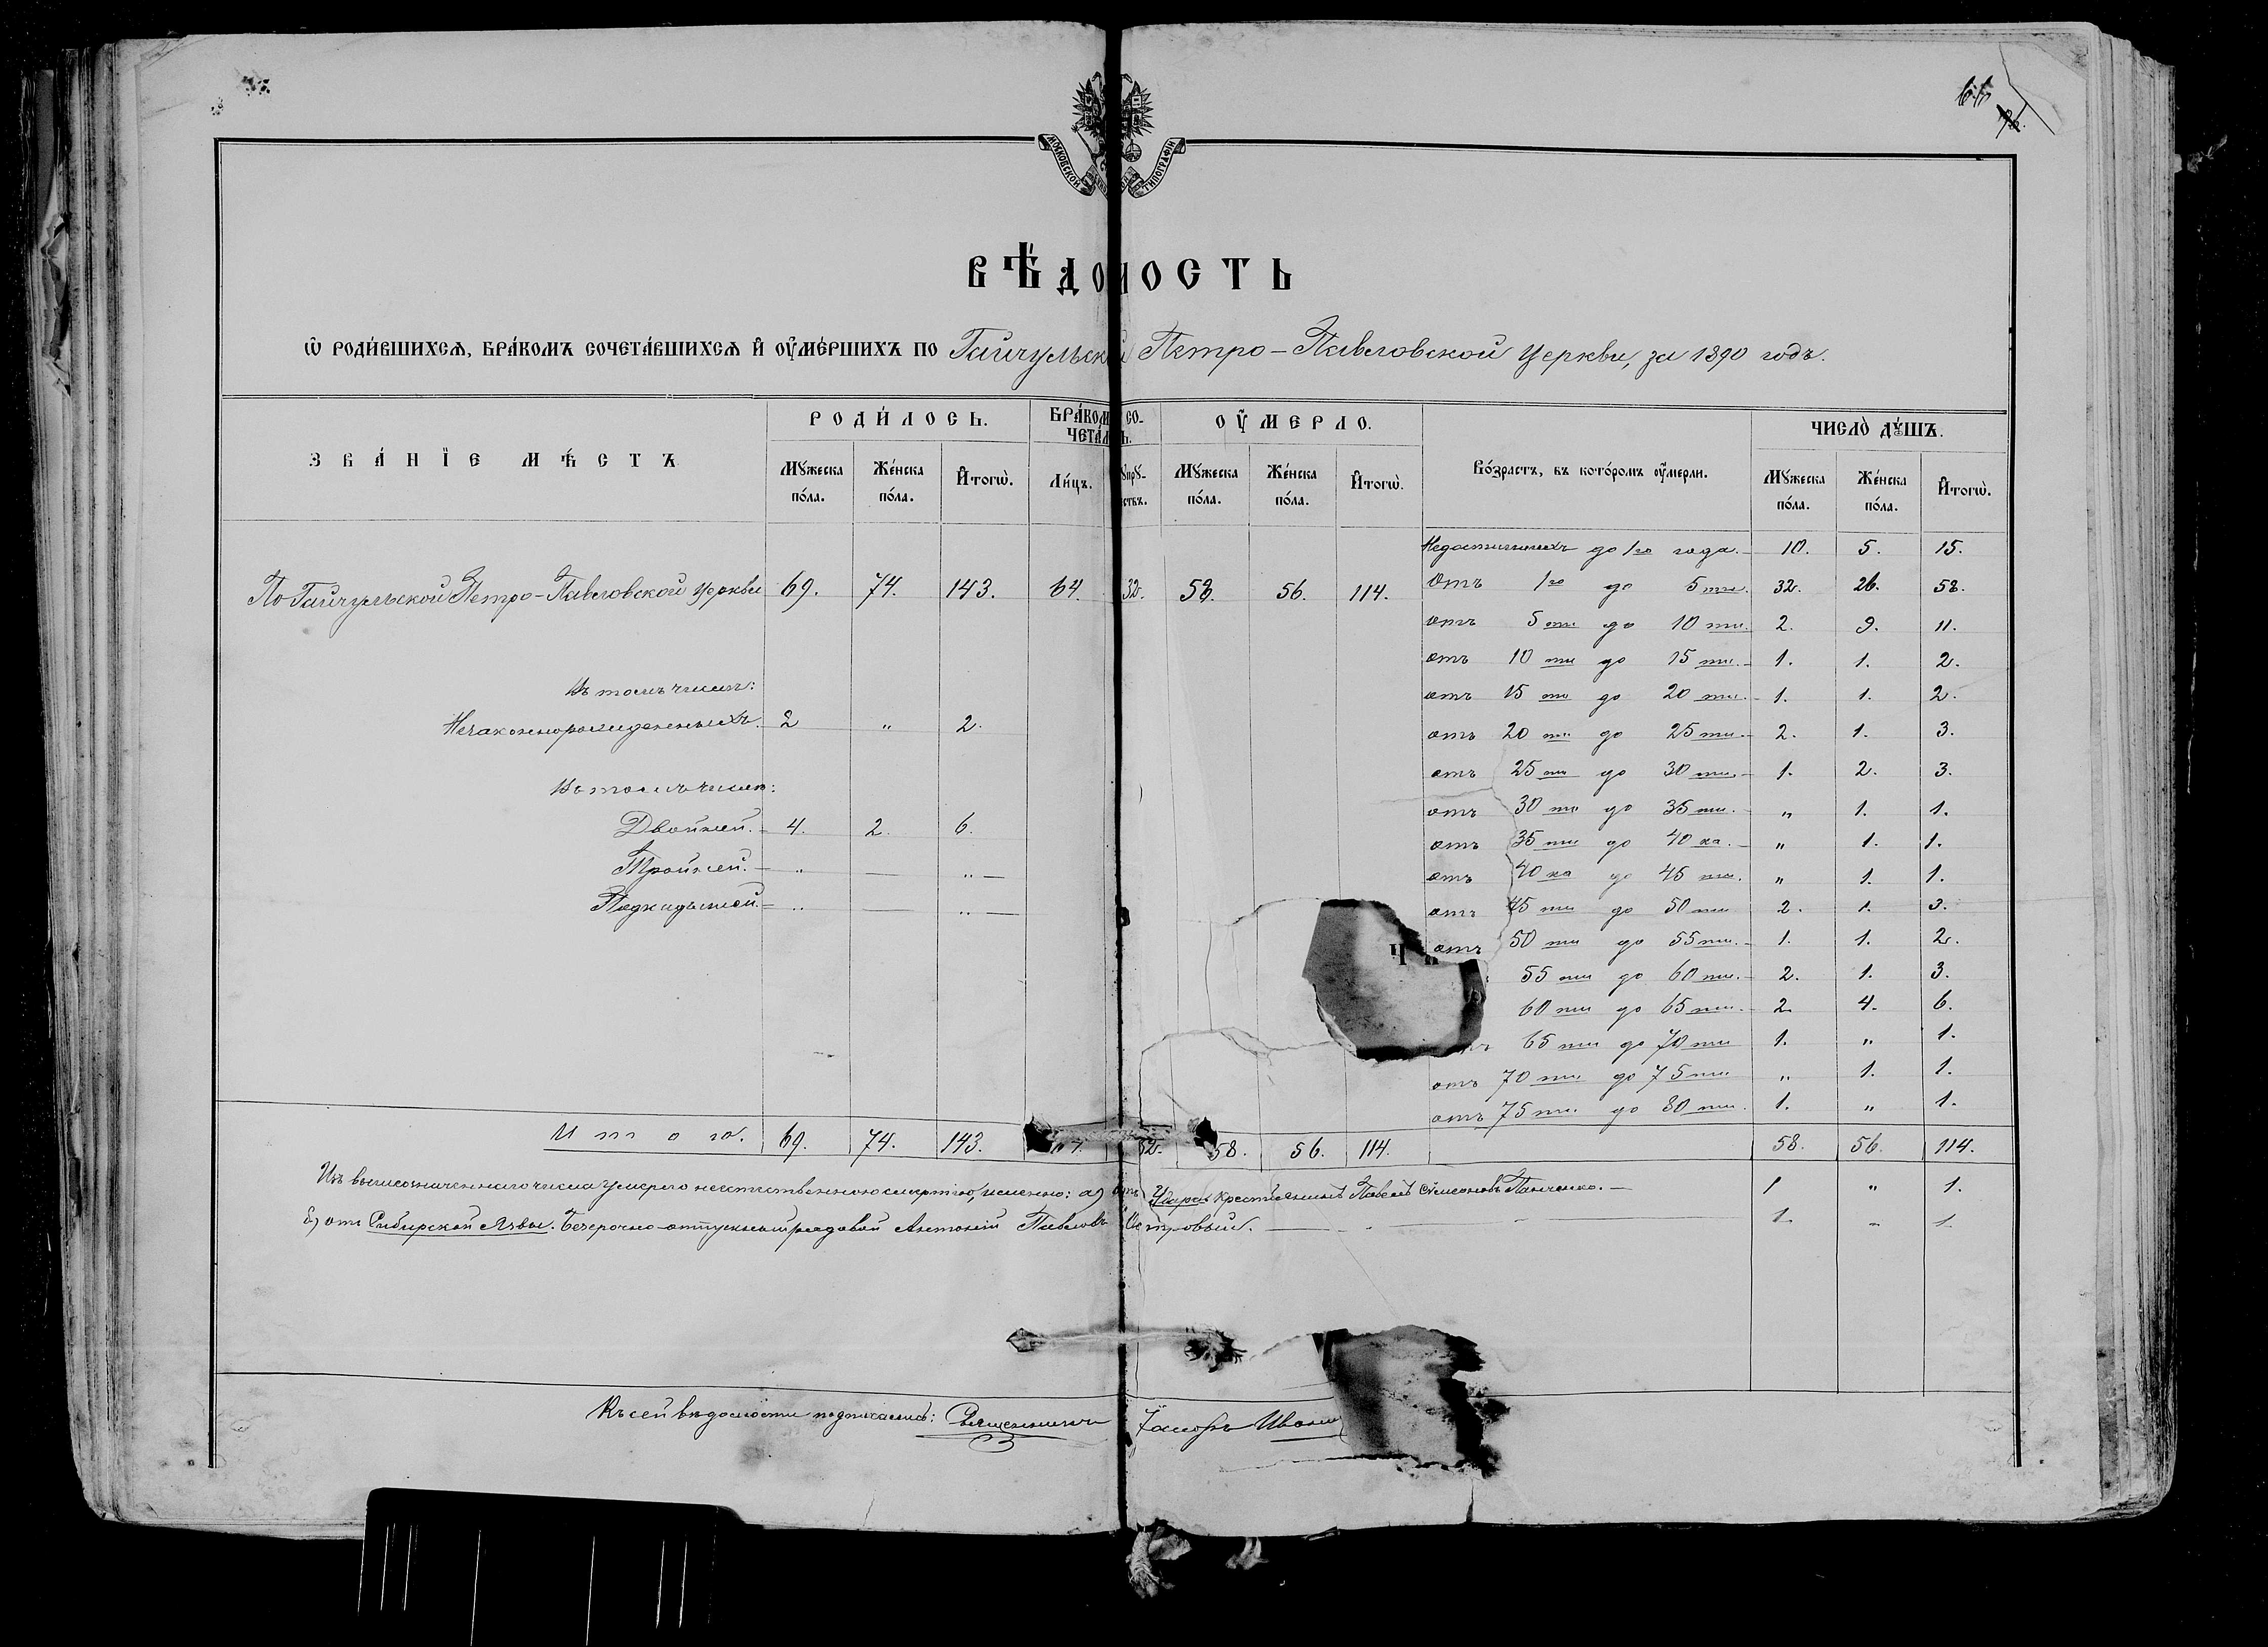 МОСКОВСКОЙ ТИПОГРАФІИ
ВѢ́ДОМОСТЬ
Ѡ҆ РОДИ́ВШИХСѦ, БРА́КОМЪ СОЧЕТА́ВШИХСѦ И҆ ОУ҆МЕ́РШИХЪ ПО Гайчульской Петро-Павловской церкви, за 1890 годъ.
ЗВА́НІЕ МѢ́СТЪ
РОДИ́ЛОСЬ.
БРА́КОМ СО-
ЧЕТА́Л Ь.
ОУ҆МЕРЛО.
Во́зрастъ, въ кото́ромъ оу҆мерли.
ЧИСЛО̀ ДꙊ́ШЪ.
Мꙋ́жеска по́ла.
Же́нска по́ла.
И҆тогѡ̀.
Ли́цъ.
Мꙋ́жеска по́ла.
Же́нска по́ла.
И҆тогѡ̀.
Мꙋ́жеска по́ла.
Же́нска по́ла.
И҆тогѡ̀.
Недостигшихъ до 1го года. 10. 5. 15.
По Гайчульской Петро-Павловской церкви 69. 74. 143. 64. 32. 58. 56. 114. Отъ 1го до 5ти. 32. 26. 58.
отъ 5ти до 10ти. 2. 9. 11.
отъ 10ти до 15ти. 1. 1. 2.
Въ томъ числѣ: отъ 15ти до 20ти. 1. 1. 2.
Незаконнорожденныхъ. 2 „ 2. отъ 20ти до 25ти. 2. 1. 3.
отъ 25ти до 30ти. 1. 2. 3.
Въ томъ числѣ: отъ 30ти до 35ти. „ 1. 1.
Двойней. 4. 2. 6. отъ 35ти до 40ка. „ 1. 1.
Тройней. — „ — „ — отъ 40ка до 45ти. „ 1. 1.
Подкидышей. — „ — „ — отъ 45ти до 50ти 2. 1. 3.
отъ 50ти до 55ти. 1. 1. 2.
55ти до 60ти. 2. 1. 3.
60ти до 65ти. 2. 4. 6.
65ти до 70ти 1. „ 1.
отъ 70ти до 75ти „ 1. 1.
отъ 75ти до 80ти. 1. „ 1.
Итого. 69. 74. 143. 32. 58. 56. 114. 58. 56. 114.
Изъ вышеозначеннаго числа умерло неестественною смертію, именно: а) отъ Удара крестьянинъ Павелъ Симеоновъ Панченко. — 1 „ 1.
б) отъ Сибирской Язвы. Безсрочно-отпускный рядовой Антоній Павловъ 1. „ 1
Къ сей вѣдомости подписались: Священникъ Іаковъ